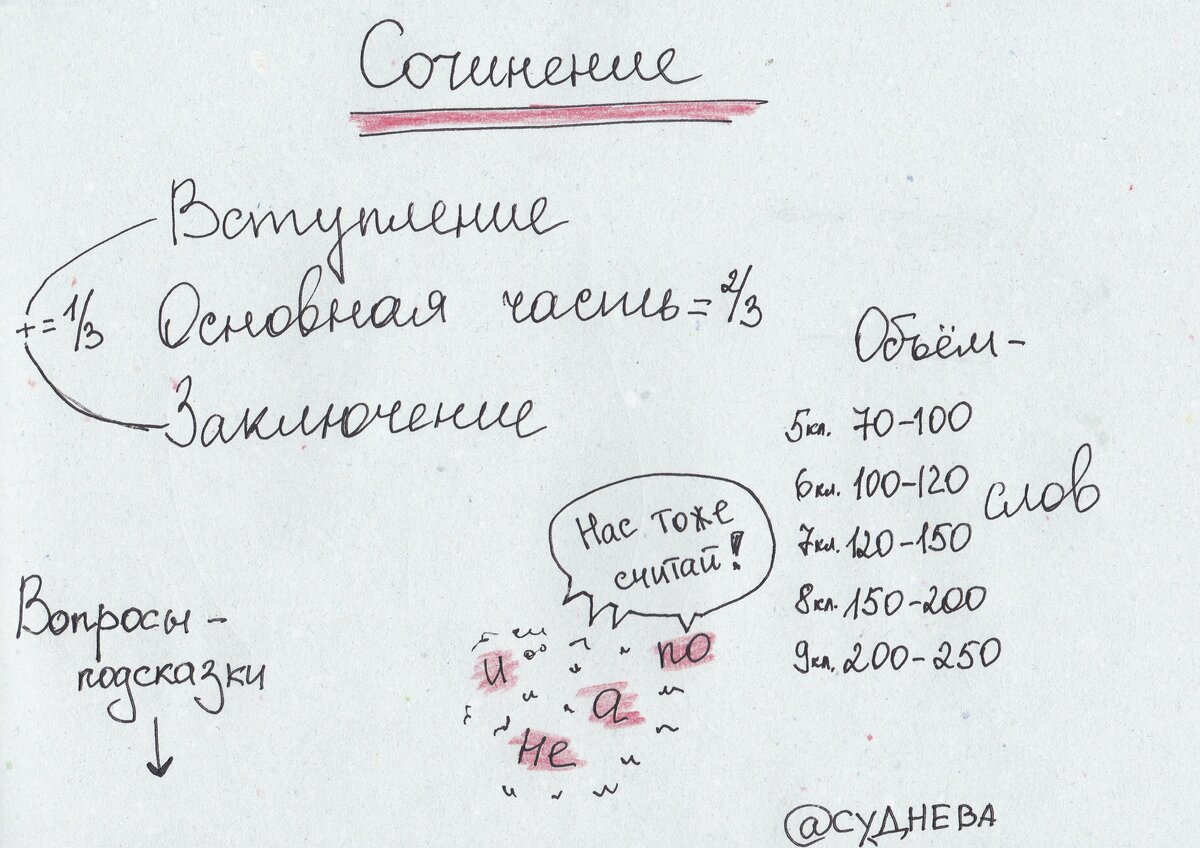 Сочинение
Вступление
+ = 1/3 Основная часть = 2/3
Заключение
Объём -
5 кл. 70-100
6 кл. 100-120
слов
7 кл. 120-150
8 кл. 150-200
9 кл. 200-250
Нас тоже
считай!
и
по
а
не
Вопросы -
подсказки
@СУДНЕВА